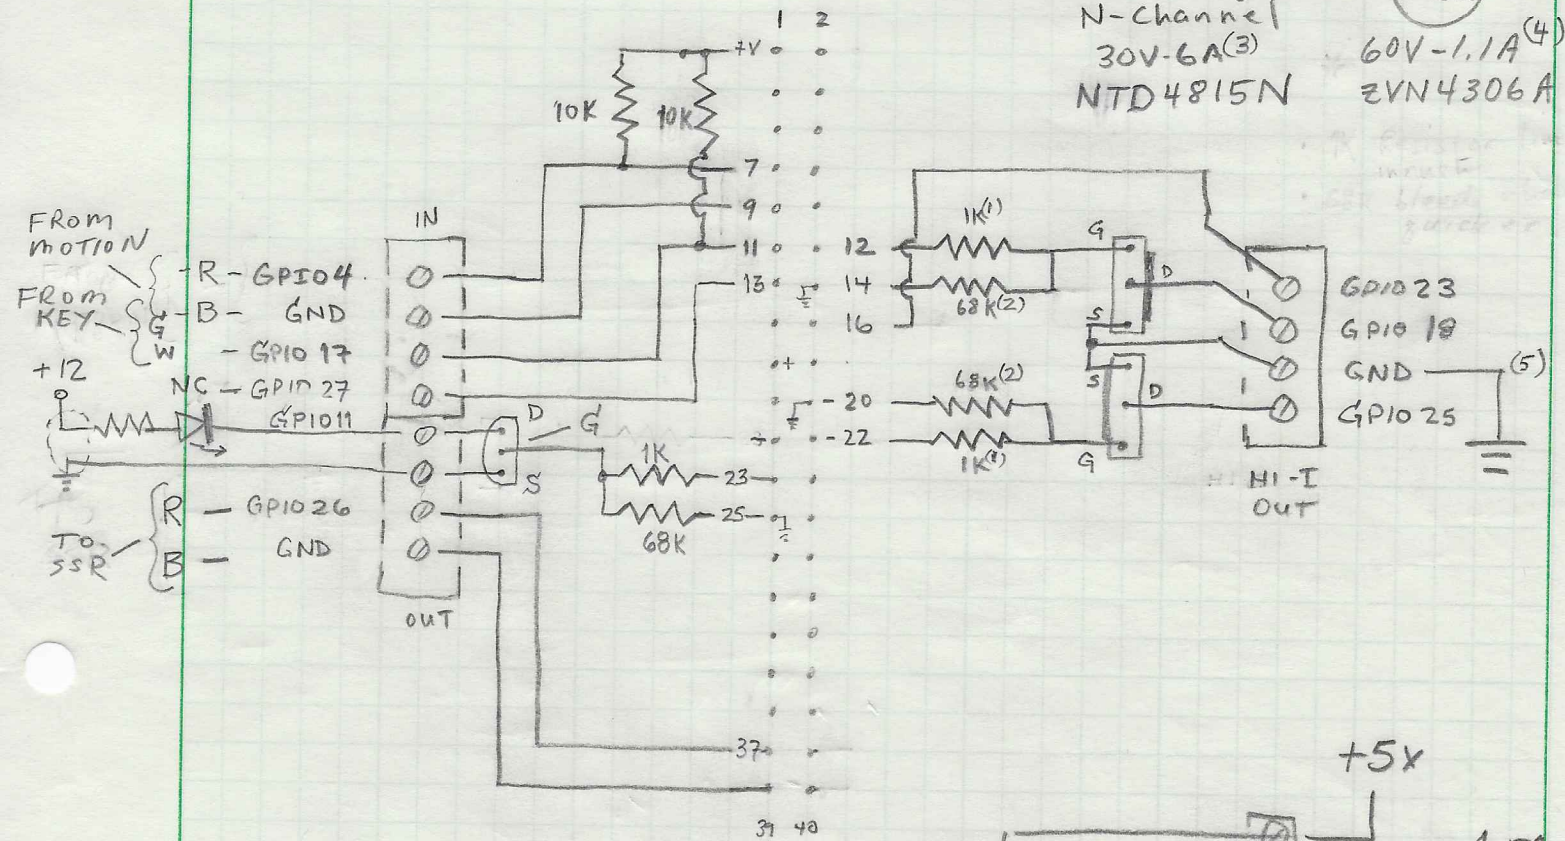 1 2
N-Channel
30V-6A(3)
NTD4815N
60V-1.1A(4)
ZVN4306A
+V
10K
10K
7
9
11
13
12
14
16
20
22
23
25
37
39 40
FROM
MOTION
FROM
KEY
+12
IN
R - GPIO4
B - GND
G
W - GPIO 17
NC - GPIO 27
GPIO11
R - GPIO26
B - GND
TO
SSR
OUT
D
G
S
1K
68K
1K(1)
68K(2)
G
D
S
S
D
G
68K(2)
1K(1)
GPIO23
GPIO 18
GND
(5)
GPIO25
HI-I
OUT
+
+
+5V